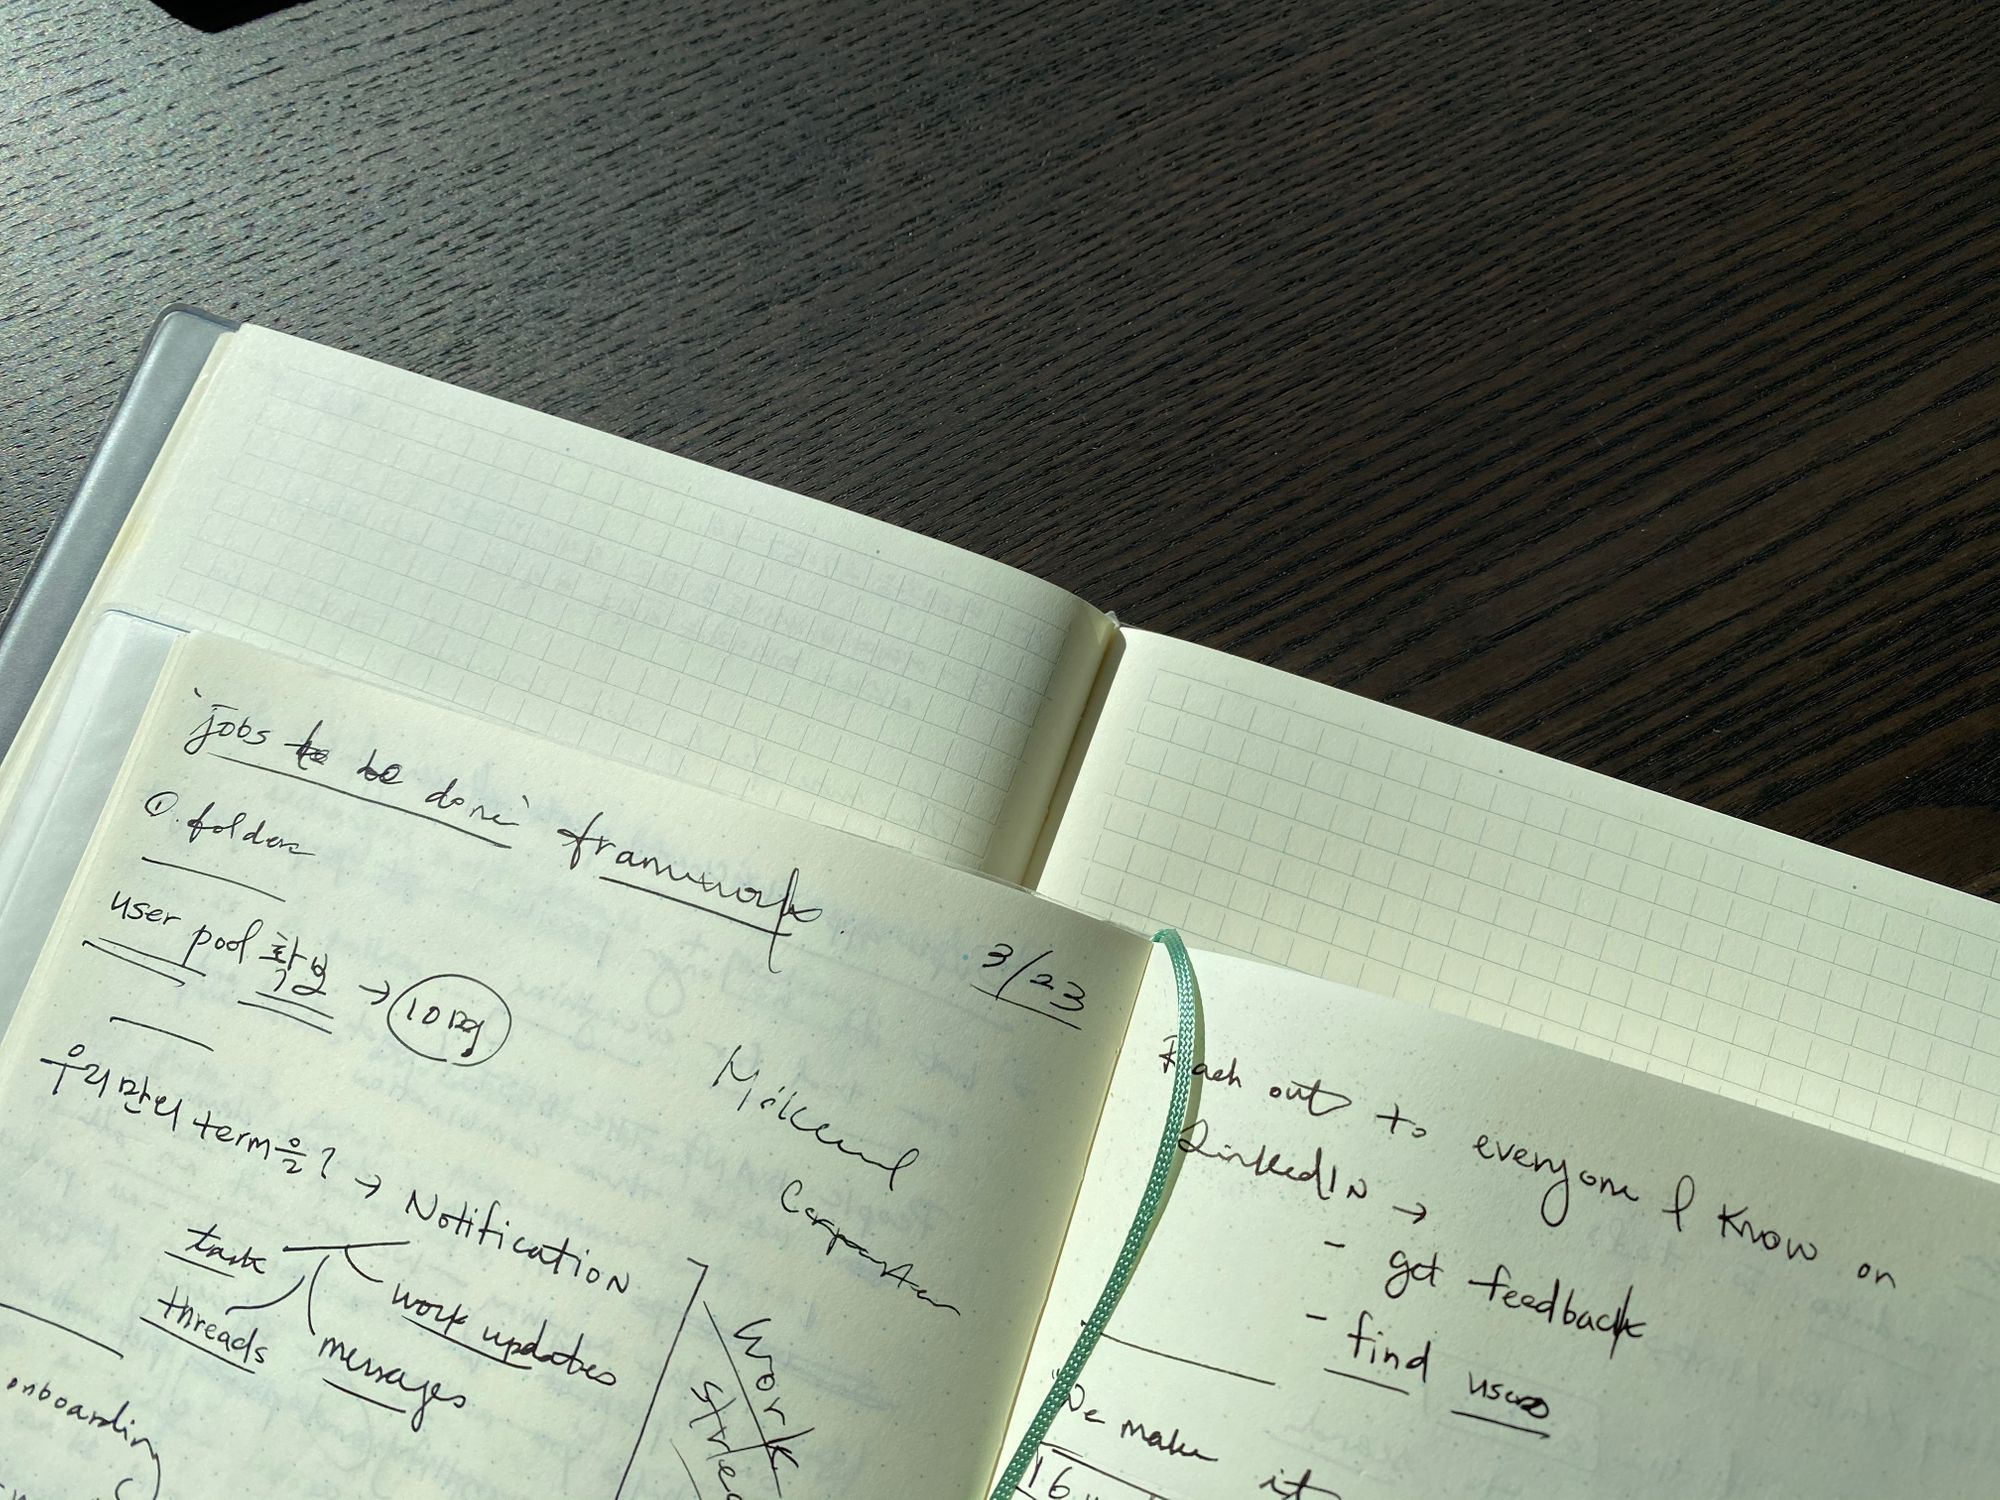 'jobs to be done' framework
① folder
3/23
user pool 확보 → 10명
우리만의 term을? → Notification
task
work updates
threads
messages
onboarding
Work
Reach out to everyone I know on
LinkedIn →
- get feedback
- find users
We make it
16